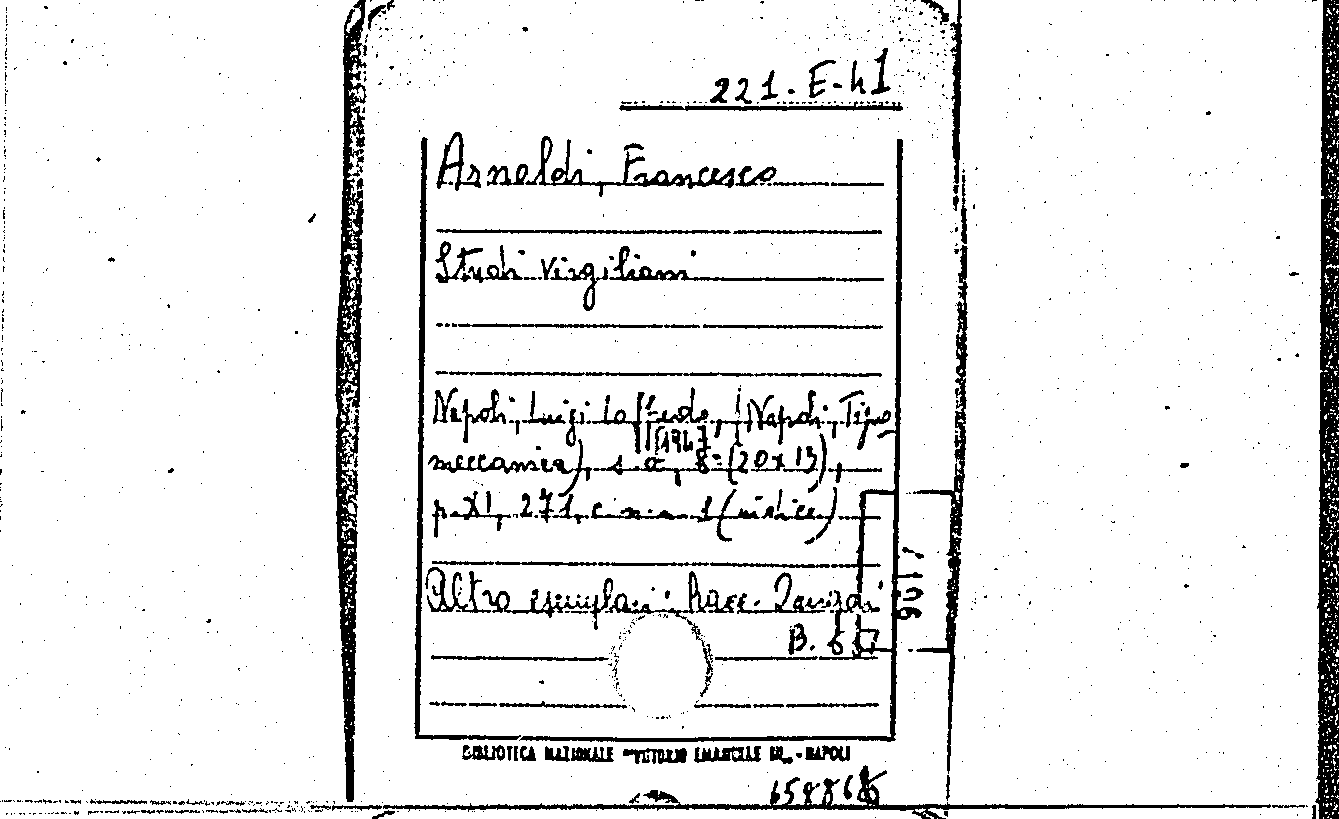 221. E-41
Arnaldi, Francesco
Studi Virgiliani
Napoli, Luigi Loffredo, (Napoli, Tipo
[194
meccanica), s. a., 8° (20x13),
p. XI, 271, c. n. n. 1 (indice)
Altro esemplare: Racc.
B.
BIBLIOTECA NAZIONALE "VITTORIO EMANUELE III„ - NAPOLI